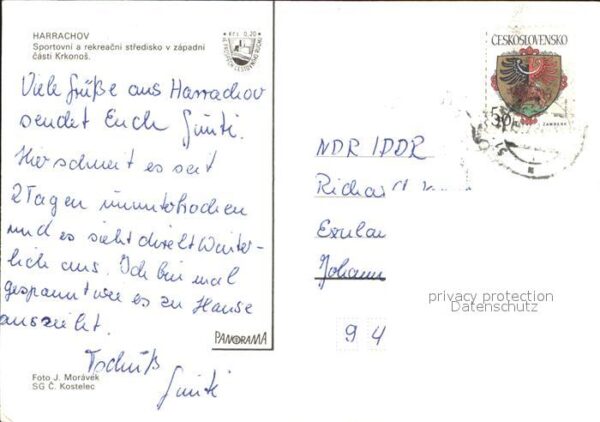 HARRACHOV
Sportovní a rekreační středisko v západní
části Krkonoš.
Kčs 0,20
Viele Grüße aus Harrachov
sendet Euch
Hier schneit es seit
2 Tagen ununterbrochen
und es sieht direkt Winter-
lich aus. Ich bin mal
gespannt wie es zu Hause
aussieht.
Tschüß
PANORAMA
Foto J. Morávek
SG Č. Kostelec
ČESKOSLOVENSKO
ZAMBERK
NDR/DDR
Johann
privacy protection
Datenschutz
9 4